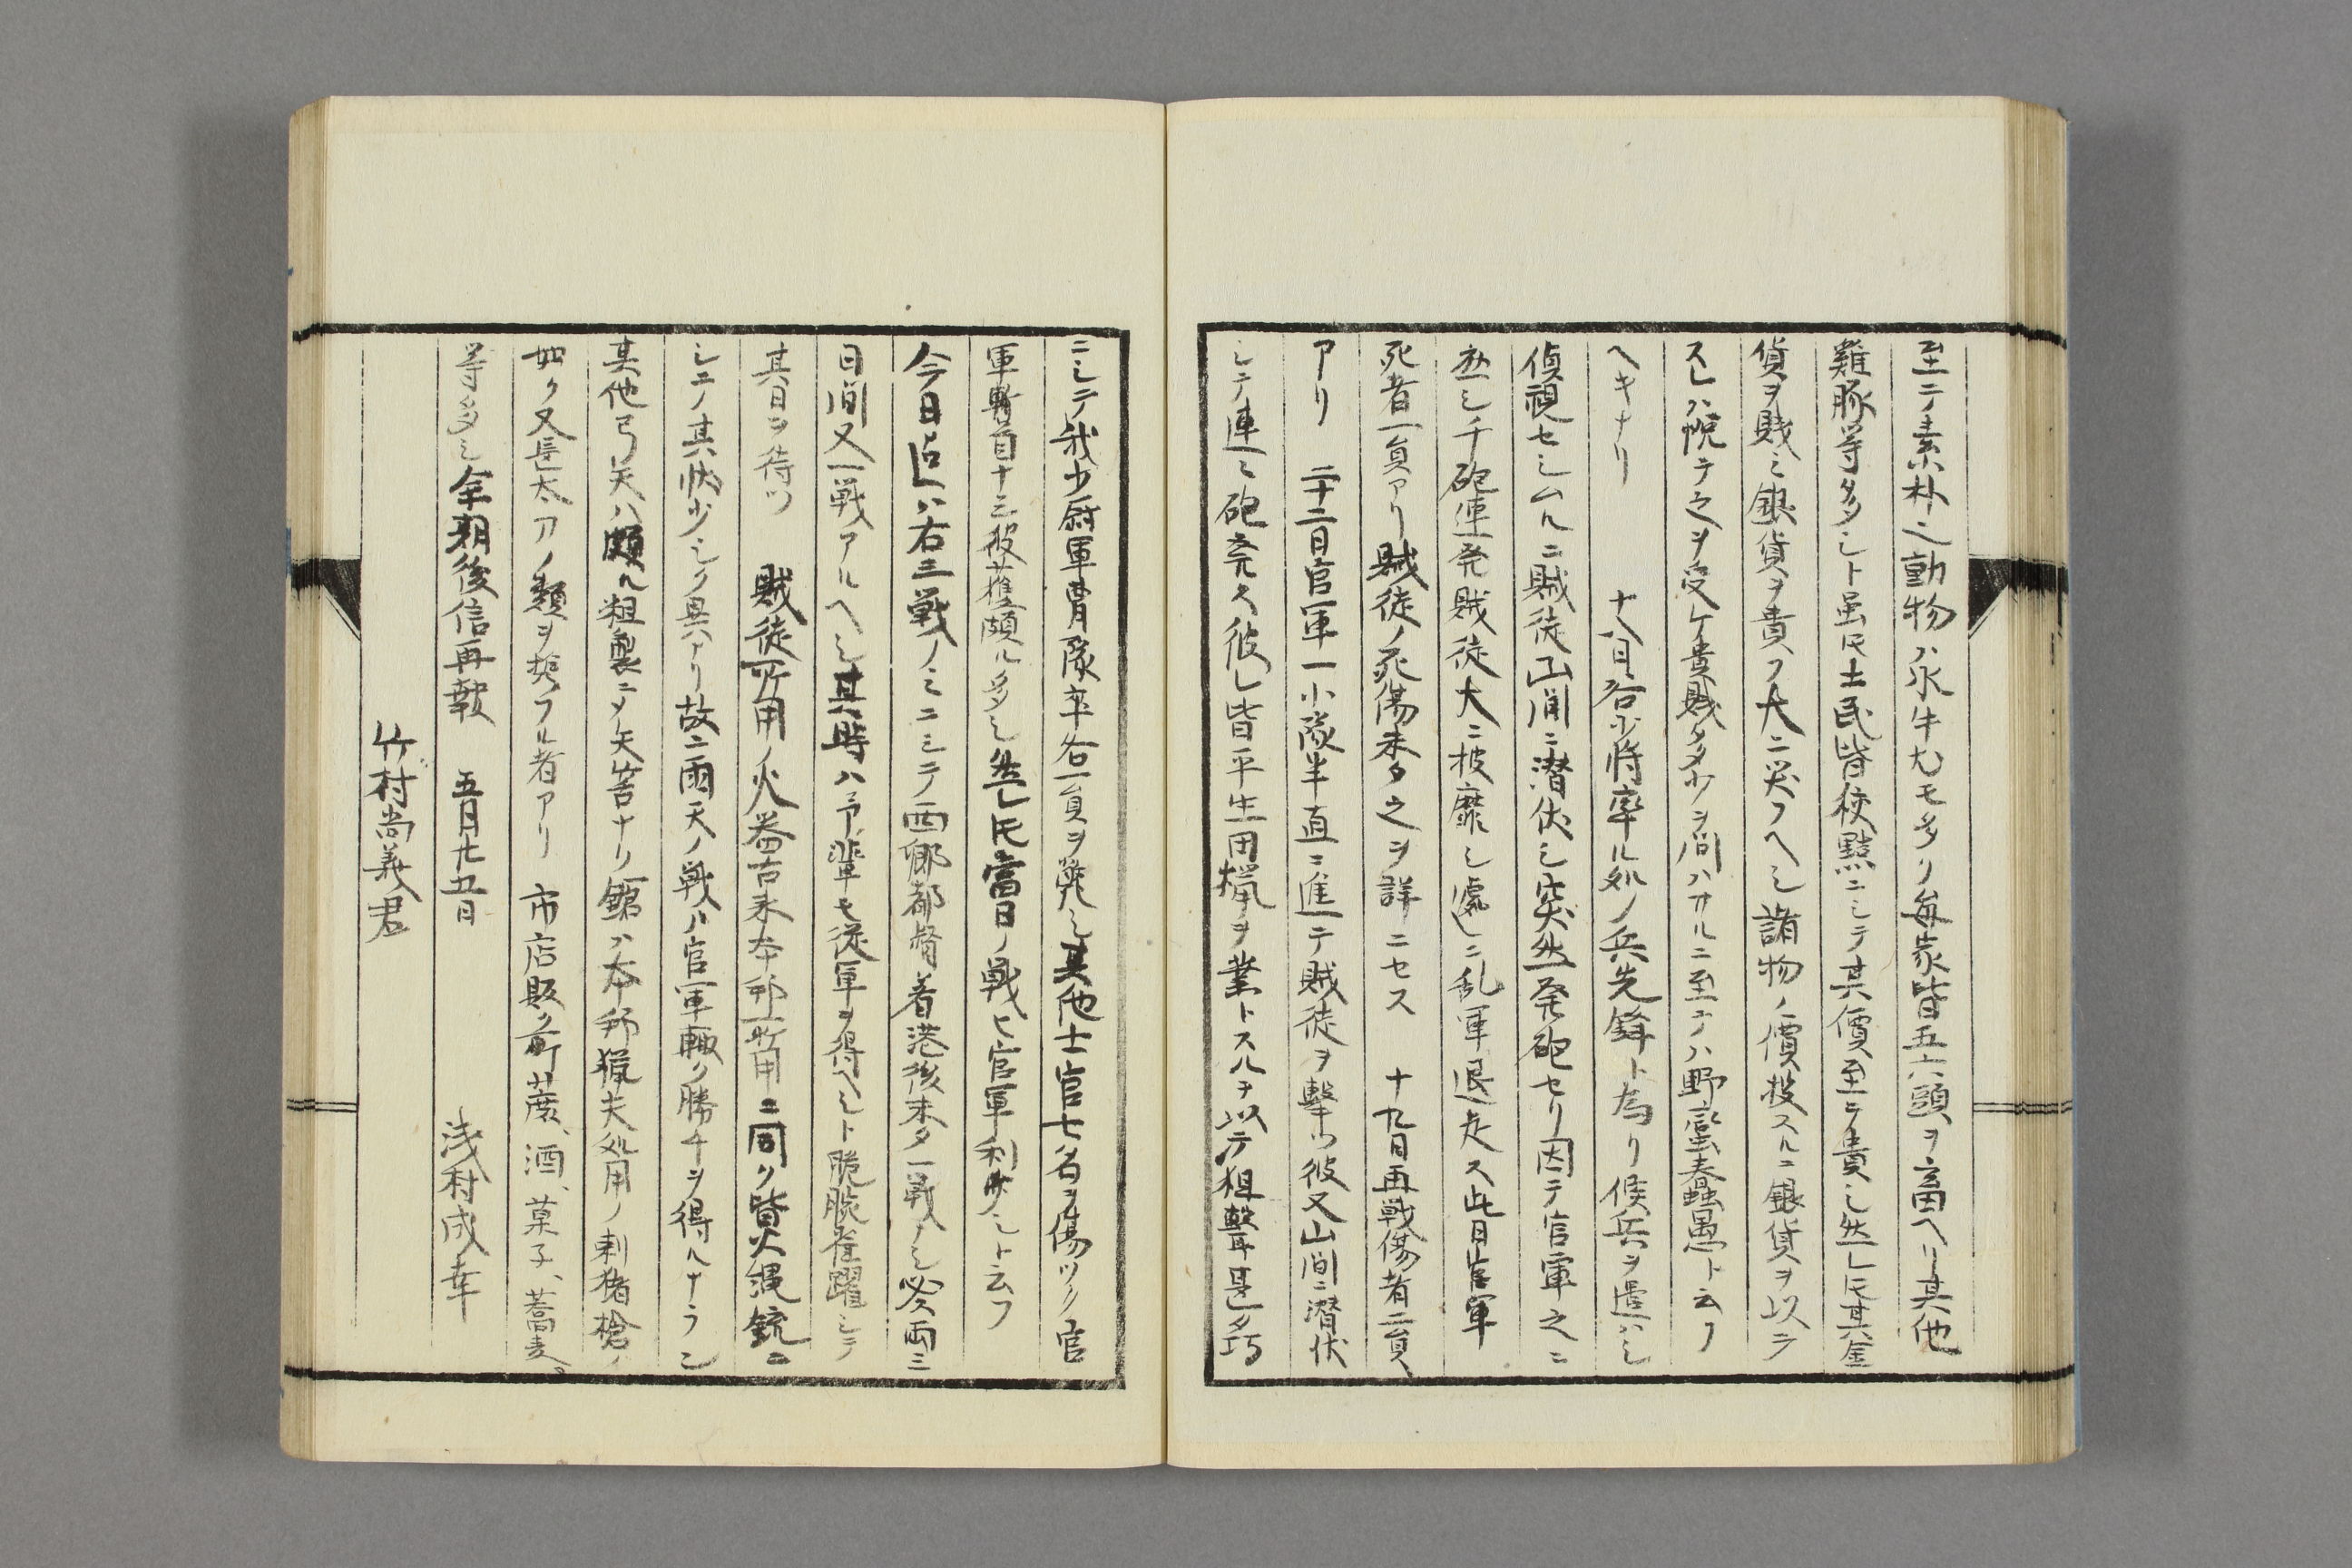 至テ素朴之動物ハ水牛尤モ多リ每家皆五六頭ヲ畜ヘリ其他
雞豚等多シト虽𪜈土民皆狡黠ニシテ其價至テ貴シ然レ𪜈其金
貨ヲ賎ミ銀貨ヲ貴フ大ニ笑フヘシ諸物ノ價投スルニ銀貨ヲ以テ
スレハ悅テ之ヲ受ケ貴賎多少ヲ问ハサルニ至テハ野蛮春蟲愚ト云フ
ヘキナリ 十八日谷少将率ル処ノ兵先鋒ト為リ候兵ヲ遣ハシ
偵視セシムルニ賊徒山间ニ潜伏シ突然発砲セリ因テ官軍之ニ
应シ千砲連発賊徒大ニ披靡シ處〻ニ乱軍退走ス此日官軍
死者一員アリ賊徒ノ死傷未タ之ヲ詳ニセス 十九日再戦傷者二員、
アリ 二十二日官軍一小隊半直ニ進テ賊徒ヲ擊ツ彼又山间ニ潜伏
シテ連〻砲発ス彼レ皆平生田猟ヲ業トスルヲ以テ狙擊甚タ巧
ニシテ我少尉軍曹隊卒各一員ヲ斃シ其他士官七名ヲ傷ツク官
軍斬首十三彼獲頗ル多シ然レ𪜈當日ノ戦ヒ官軍利少シト云フ
今日迠ハ右三戦ノミニシテ西郷都督着港後未タ一戦ナシ必又両三
日间又一戦アルヘシ其時ハ予輩モ従軍ヲ得ヘシト脆腕雀躍シテ
其日ヲ待ツ 賊徒所用ノ火器古来本邦所用ニ同リ皆火縄銃ニ
シテノ其快少シク異ハアリ故ニ雨天ノ戦ハ官軍輙ク勝チヲ得ルナラン
其他弓矢ハ頗ル粗製ニメ矢筈ナリ鎗ハ本邦猟夫処用ノ刺猪槍ノ
如ク又長太刀ノ類ヲ拵フル者アリ 市店販ク所蔗、酒、菓子、蕎麦。
等多シ余期後信再報 五月廿五日 浅村成幸
竹村尚義君